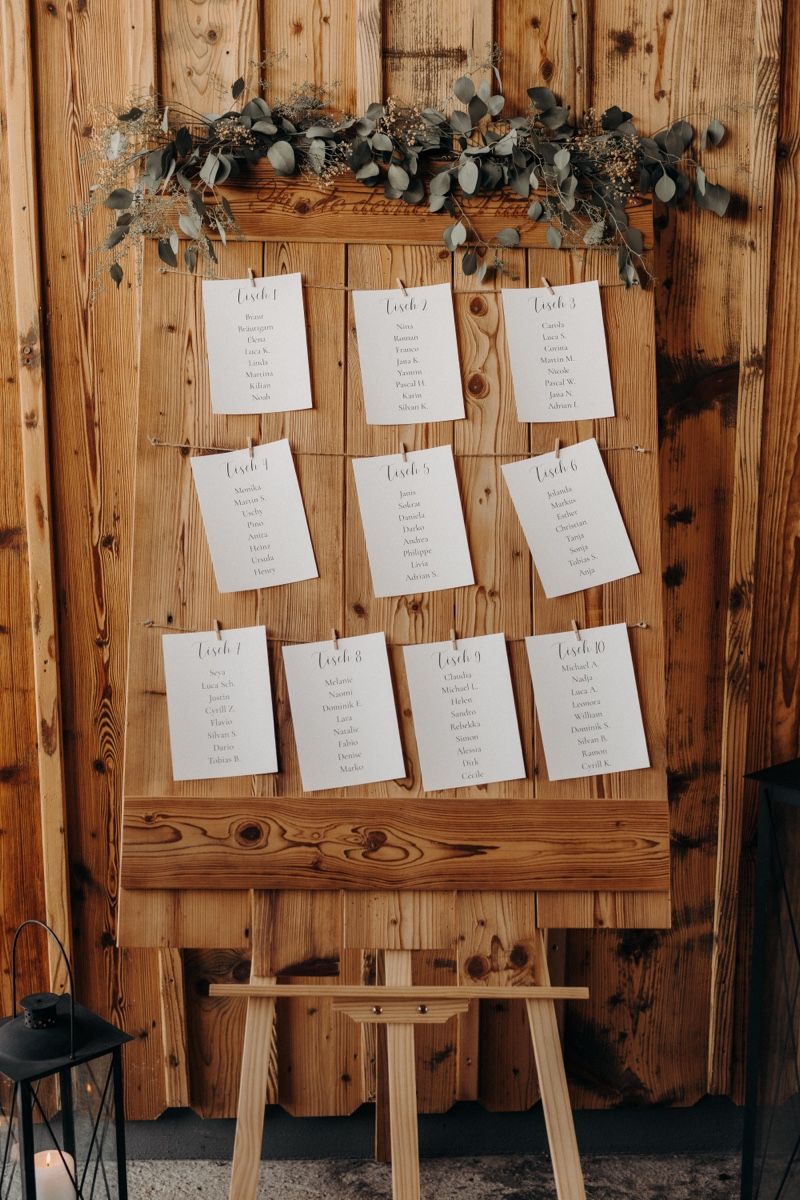 Finde deinen Platz
Tisch 1
Braut
Bräutigam
Elena
Luca K.
Linda
Martina
Kilian
Noah
Tisch 2
Nina
Roman
Franco
Jana K.
Yasmin
Pascal H.
Karin
Silvan K.
Tisch 3
Carola
Luca S.
Corina
Martin M.
Nicole
Pascal W.
Jana N.
Adrian L.
Tisch 4
Monika
Martin S.
Uschy
Pino
Anita
Heinz
Ursula
Henry
Tisch 5
Janis
Sokrat
Daniela
Darko
Andrea
Philippe
Livia
Adrian S.
Tisch 6
Jolanda
Markus
Esther
Christian
Tanja
Sonja
Tobias S.
Anja
Tisch 7
Seya
Luca Sch.
Justin
Cyrill Z.
Flavio
Silvan S.
Dario
Tobias B.
Tisch 8
Melanie
Naomi
Dominik E.
Lara
Natalie
Fabio
Denise
Marko
Tisch 9
Claudia
Michael L.
Helen
Sandro
Rebekka
Simon
Alessia
Dirk
Cécile
Tisch 10
Michael A.
Nadja
Luca A.
Leonora
William
Dominik S.
Silvan B.
Ramon
Cyrill K.